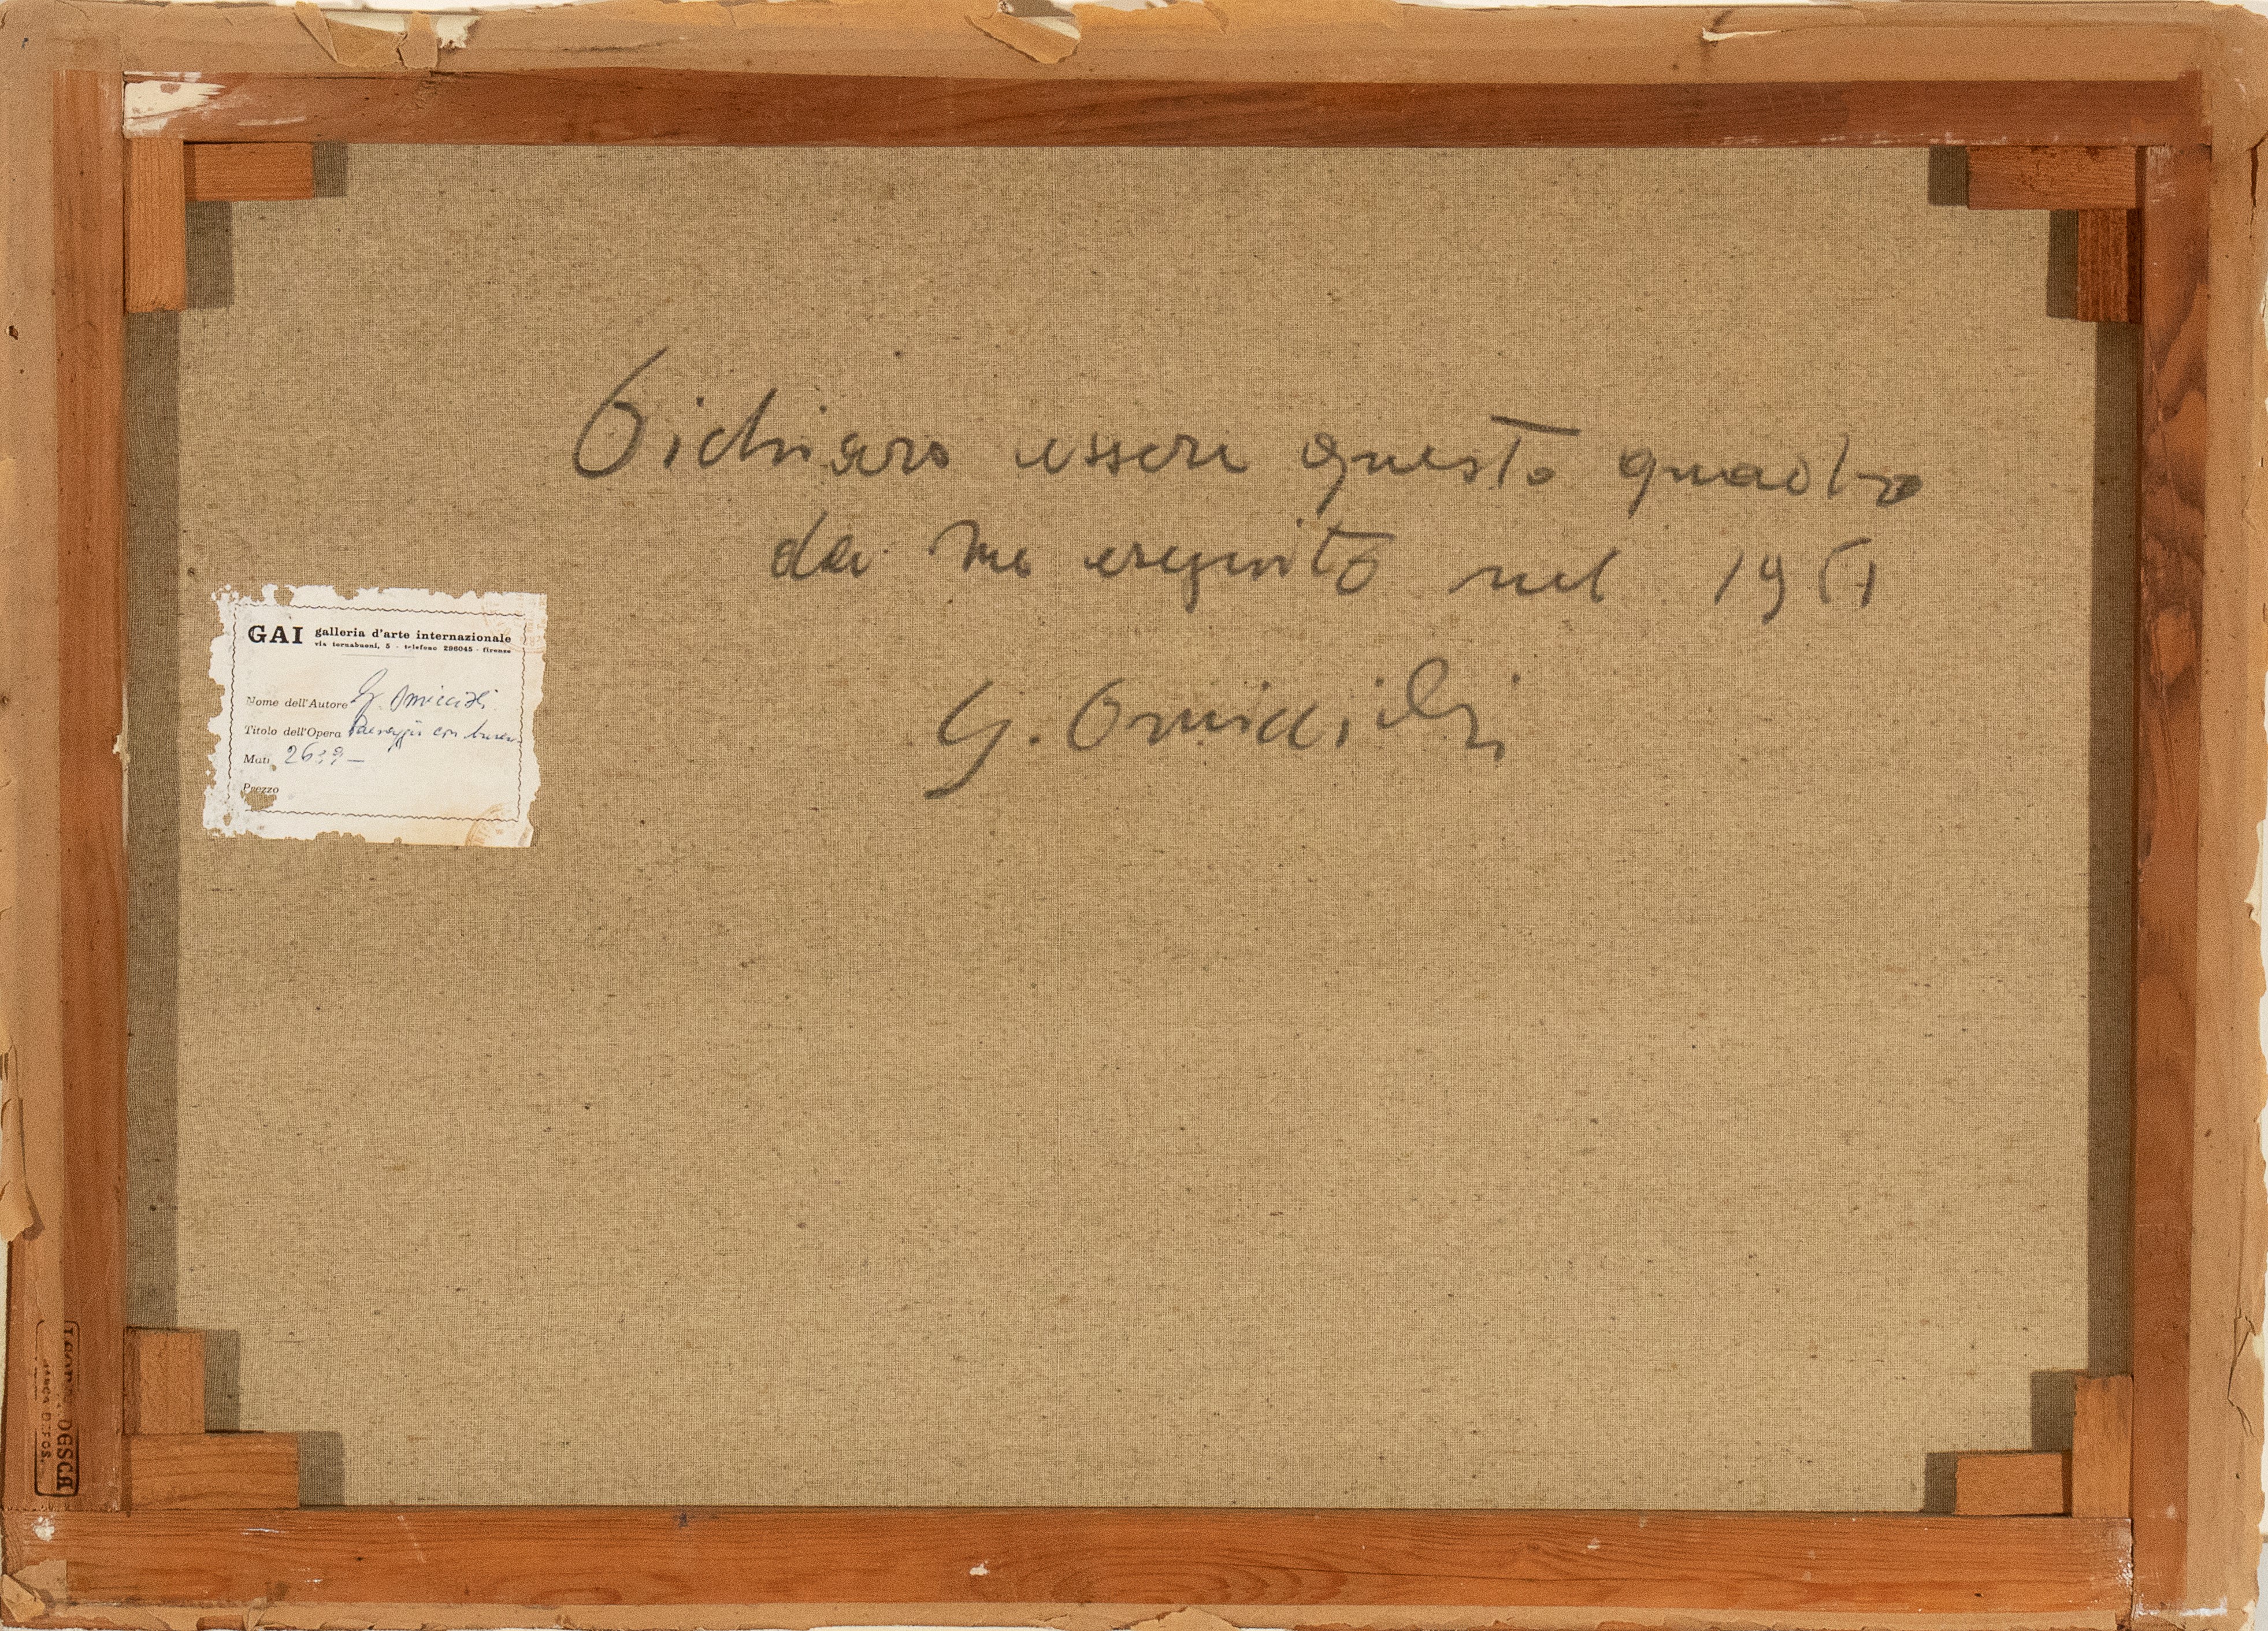 Dichiaro essere questo quadro
da me eseguito nel 1951
G. Omiccioli
GAI galleria d'arte internazionale
via tornabuoni, 5 - telefono 296045 - firenze
Nome dell'Autore G. Omiccioli
Titolo dell'Opera Paesaggio con
Mati
Prezzo